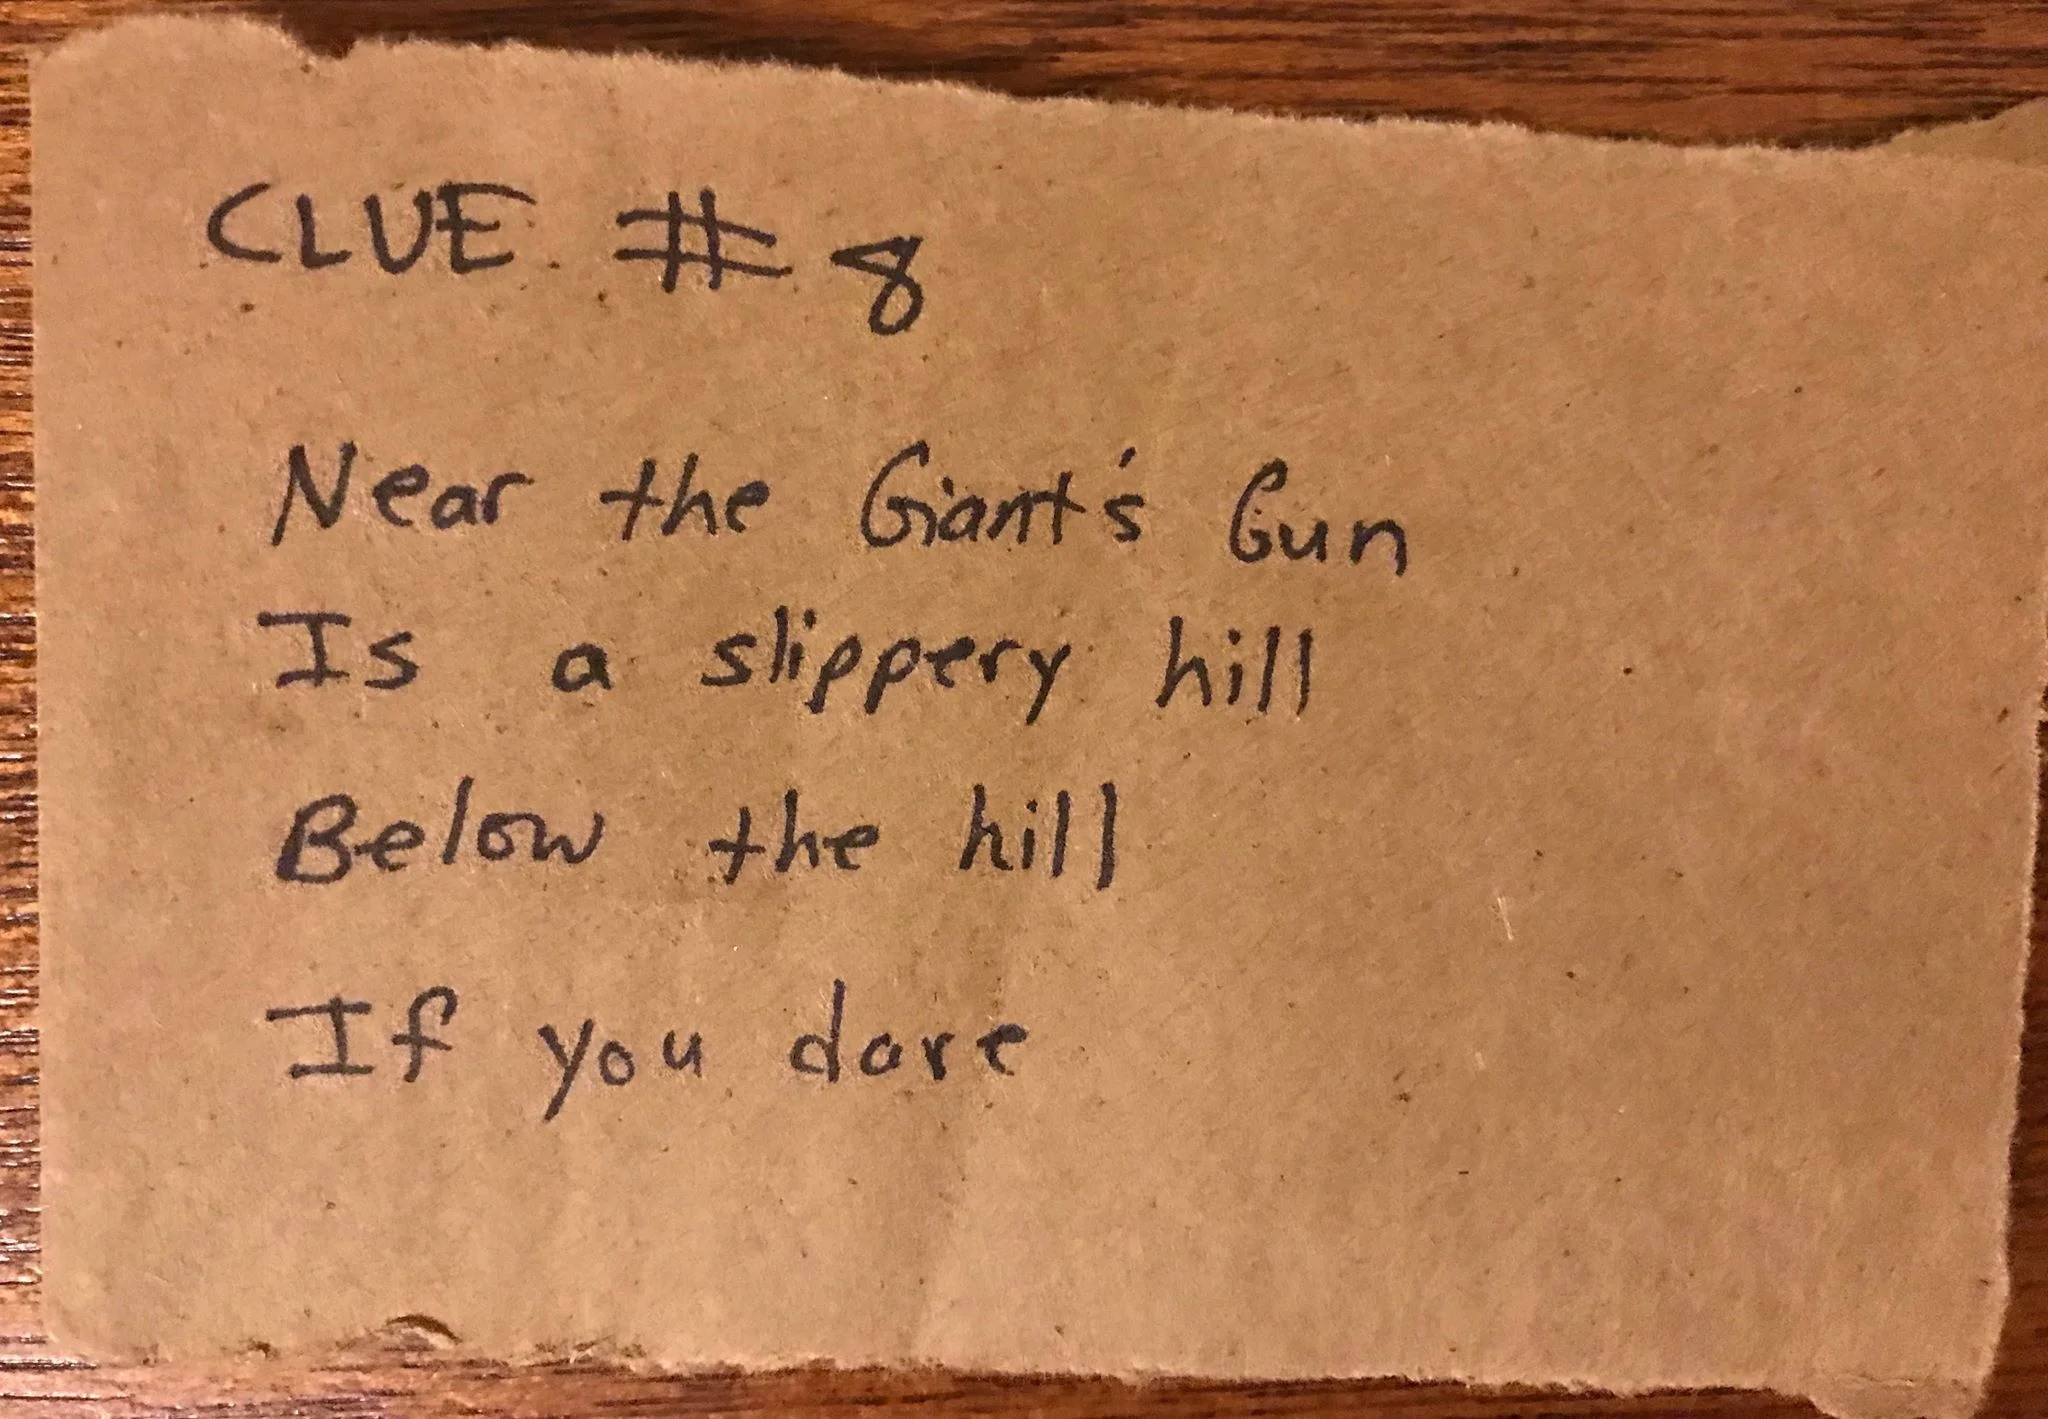 CLUE # 8
Near the Giant's Gun
Is a slippery hill
Below the hill
If you dare